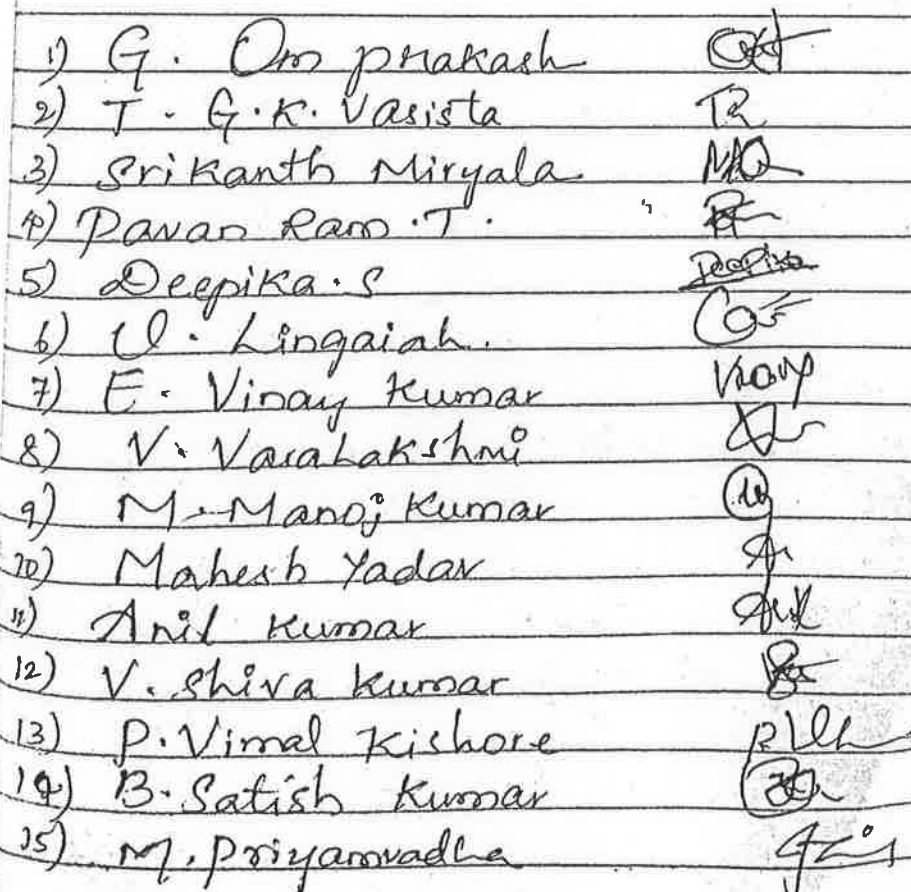 1) G. Om prakash
2) T. G. K. Vasista
3) Srikanth Miryala
4) Pavan Ram. T.
5) Deepika. S Deepika
6) U. Lingaiah.
7) E. Vinay Kumar Vinay
8) V. VaraLakshmi
9) M. Manoj Kumar
10) Mahesh Yadav
11) Anil Kumar
12) V. Shiva Kumar
13) P. Vimal Kishore
14) B. Satish Kumar
15) M. Priyamvadha